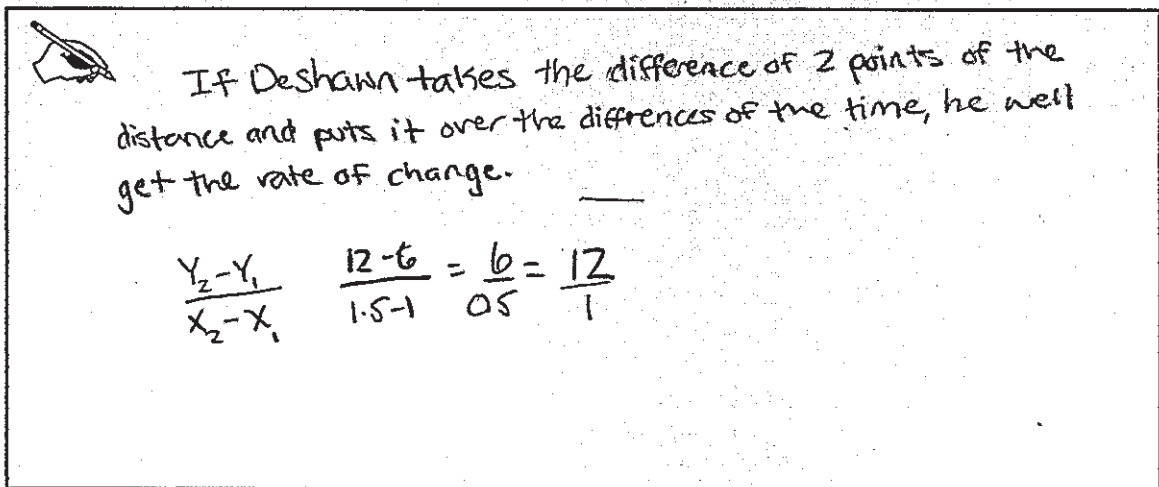 If Deshawn takes the difference of 2 points of the
distance and puts it over the diffrences of the time, he well
get the rate of change.
Y₂-Y₁ / X₂-X₁   12-6 / 1.5-1 = 6 / 05 = 12 / 1